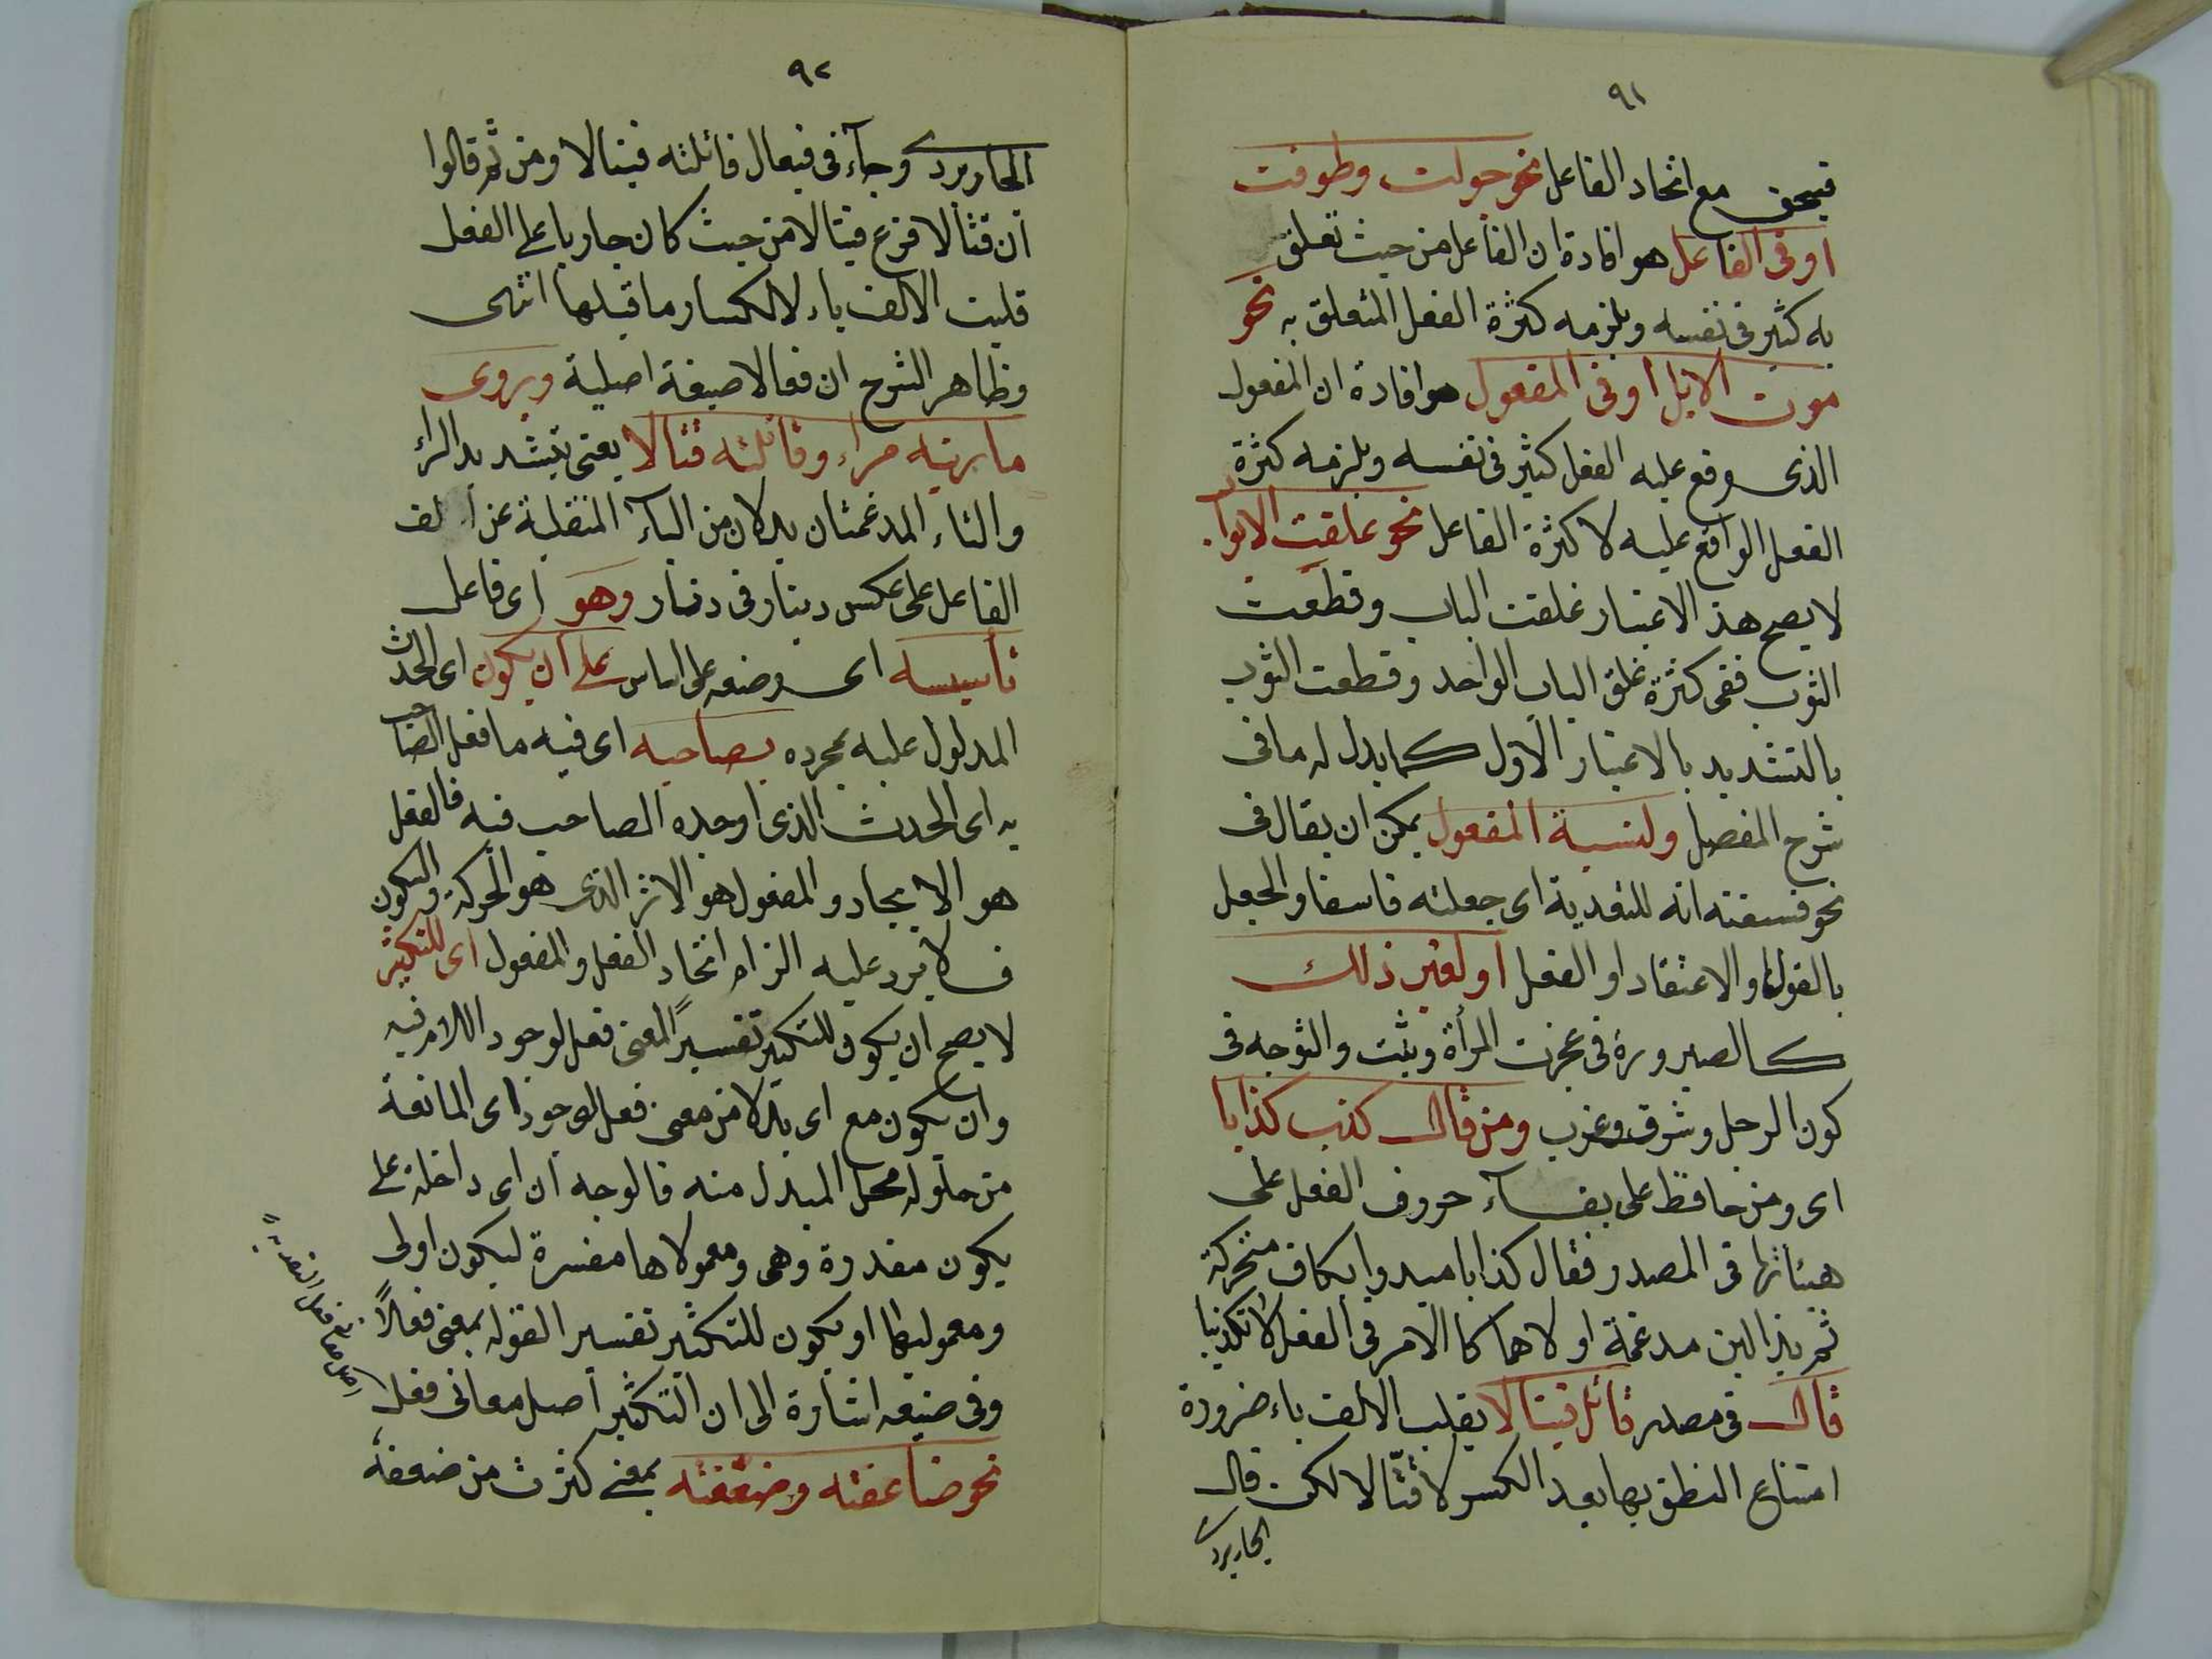 ٩١
فيتحقق مع اتحاد الفاعل نحو جولت وطوفت
او فى الفاعل هو افادة ان الفاعل من حيث تعلق
به كثير فى نفسه ويلزمه كثرة الفعل المتعلق به نحو
موت الابل او فى المفعول هو افادة ان المفعول
الذى وقع عليه الفعل كثير فى نفسه ويلزمه كثرة
الفعل الواقع عليه لا كثرة الفاعل نحو غلقت الابواب
لا يصح هذا الاعتبار غلقت الباب وقطعت
الثوب ففى كثرة غلق الباب الواحد وقطعت الثوب
بالتشديد بالاعتبار الاول كما يدل له ما فى
شرح المفصل ولنسبة المفعول يمكن ان يقال فى
نحو فسقته انه للتعدية اى جعلته فاسقا والجعل
بالقول او الاعتقاد او الفعل او لغير ذلك
كالصيرورة فى عجزت المرأة وثبت والتوجه فى
كون الرجل وشرق وغرب ومن قال كذب كذابا
اى ومن حافظ على بقاء حروف الفعل على
هيئاتها فى المصدر فقال كذابا مبدوا بكاف متحركة
ثم بذالين مدغمة اولاهما كما الامر فى الفعل لا تكذيبا
قال فى مصدر قاتل قيتالا بقلب الالف ياء ضرورة
امتناع النطق بها بعد الكسر لا قتالا لكن قال
الجاربردى
٩٢
الجاربردى وجاء فى فيعال قاتلته قيتالا ومن ثم قالوا
ان قتالا فرع قيتالا من حيث كان جاريا على الفعل
قلبت الالف ياء لانكسار ما قبلها انتهى
وظاهر الشرح ان فعالا صيغة اصلية ويروى
ماريته مراء وقاتلته قتالا يعنى بتشديد الراء
والتاء المدغمتان بدلان من الياء المنقلبة عن الف
الفاعل على عكس دينار فى دنار وهو اى فاعل
تأسيسه اى وضعه على اساس على ان يكون اى الحدث
المدلول عليه بمجرده بصاحبه اى فيه ما فعل الصاحب
به اى الحدث الذى اوجده الصاحب فيه فالفعل
هو الايجاد والمفعول هو الاثر الذى هو الحركة والسكون
فلا يرد عليه الزام اتحاد الفعل والمفعول اى للتكثير
لا يصح ان يكون للتكثير تفسيرا لمعنى فعل لوجود اللام فيه
وان يكون مع اى بدلا من معنى فعل لوجود اى المانعة
من حلوله محل المبدل منه فالوجه ان اى داخلة على
يكون مقدرة وهى ومعمولاها مفسرة ليكون اولى
ومعموليها او يكون للتكثير تفسير القوله بمعنى فعالا
وفى صنيعه اشارة الى ان التكثير اصل معانى فعل
نحو ضاعفته وضعفته بمعنى كثرت من ضعفه